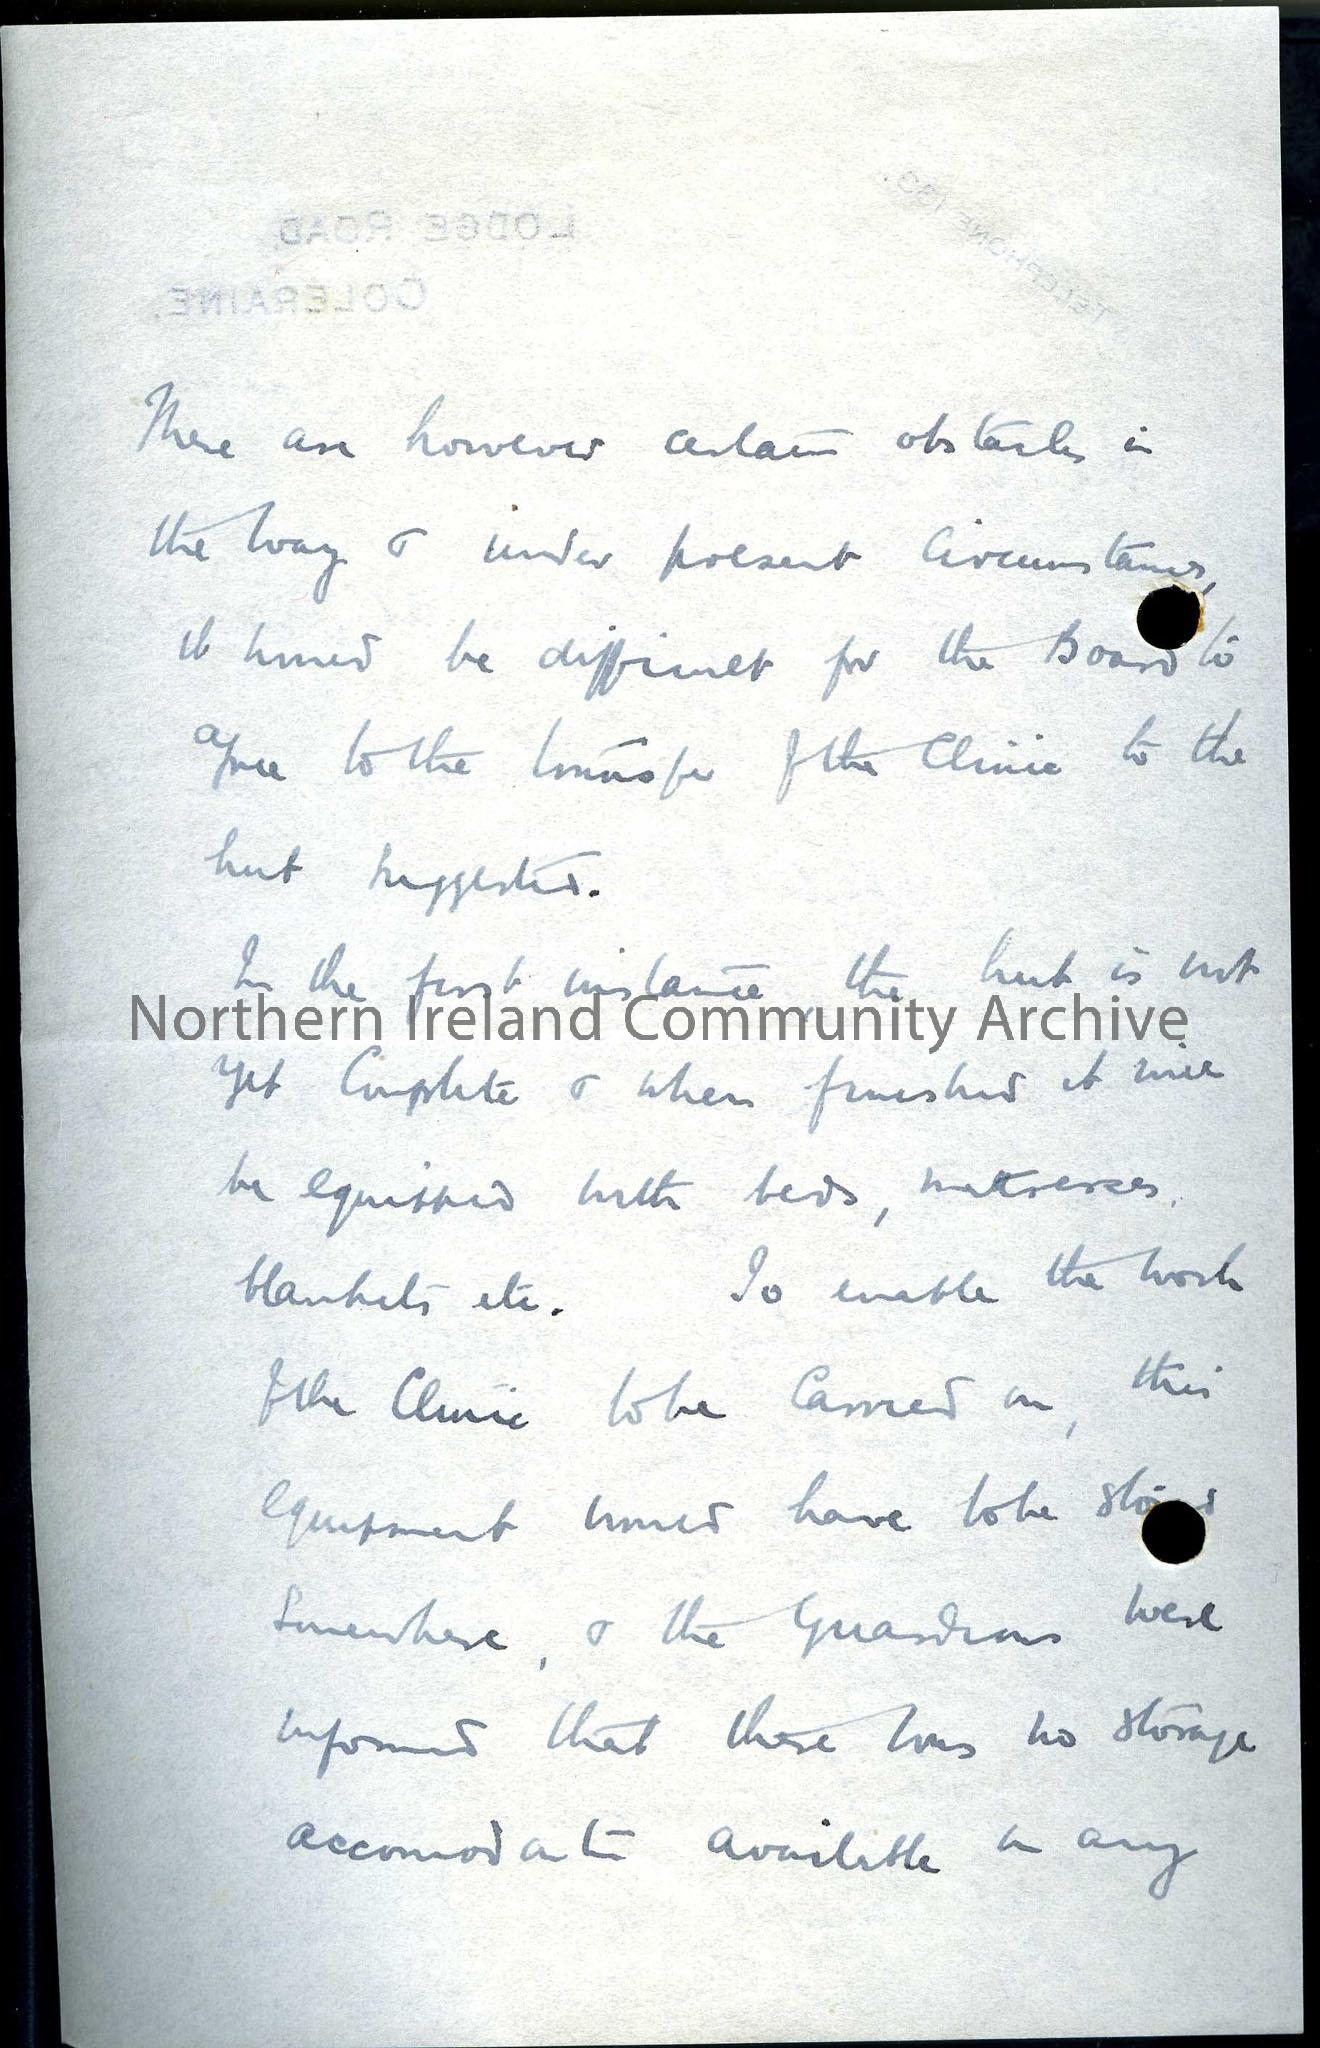 LODGE ROAD,
COLERAINE.
TELEPHONE 190.
There are however certain obstacles in
the way & under present circumstances,
it would be difficult for the Board to
agree to the transfer of the Clinic to the
hut suggested.
In the first instance, the hut is not
Northern Ireland Community Archive
yet complete & when finished it will
be equipped with beds, matresses,
blankets etc. To enable the work
of the Clinic to be carried on, this
equipment would have to be stored
somewhere, & the Guardians were
informed that there was no storage
accomodation available in any